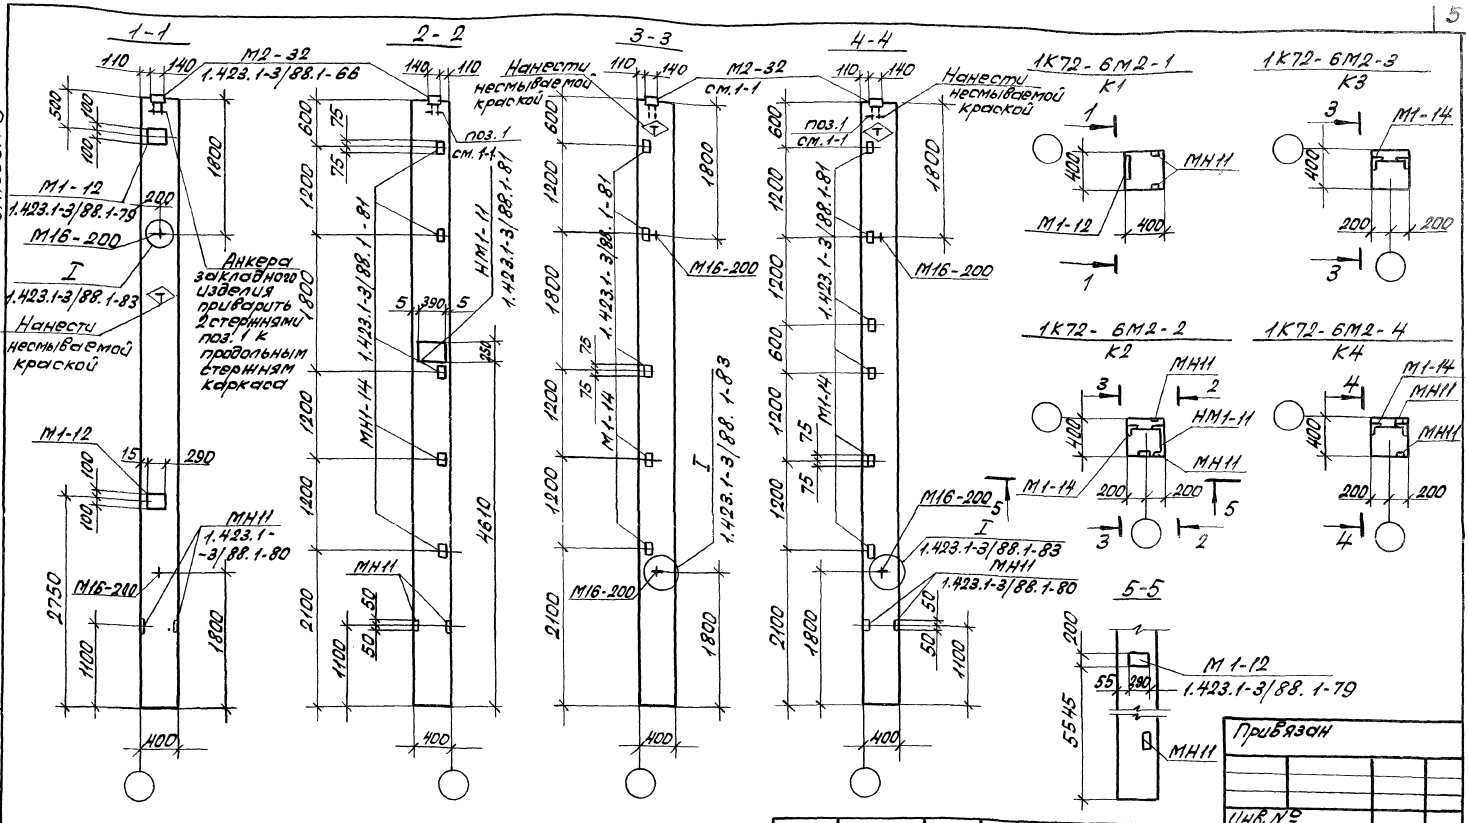 5
1-1
110
140
М2-32
1.423.1-3/88.1-66
500
100
100
1800
М1-12
1.423.1-3/88.1-79
200
М16-200
I
1.423.1-3/88.1-83
Нанести
несмываемой
краской
Анкера
закладного
изделия
приварить
2 стержнями
поз. 1 к
продольным
стержням
каркаса
М1-12
15
290
100
100
МН11
1.423.1-
-3/88.1-80
М16-200
2750
1100
1800
400
2-2
140
110
600
75
75
поз. 1
см. 1-1
1200
1800
1200
1200
2100
МН1-14
1.423.1-3/88.1-81
НМ1-11
1.423.1-3/88.1-81
5
390
5
250
4610
МН11
50
50
1100
400
3-3
Нанести
несмываемой
краской
110
140
М2-32
см. 1-1
600
1200
1800
1200
1200
2100
1800
М1-14
1.423.1-3/88.1-81
М16-200
75
75
I
1.423.1-3/88.1-83
М16-200
1800
400
4-4
110
140
Нанести
несмываемой
краской
поз. 1
см. 1-1
600
1200
1200
600
1200
1200
2100
1800
М1-14
1.423.1-3/88.1-81
М16-200
75
75
М16-200
I
1.423.1-3/88.1-83
МН11
1.423.1-3/88.1-80
1800
50
50
1100
400
1К72-6М2-1
К1
1
400
МН11
М1-12
400
1
1К72-6М2-3
К3
3
М1-14
400
200
200
3
1К72-6М2-2
К2
МН11
3
2
400
НМ1-11
МН11
М1-14
200
200
5
5
3
2
1К72-6М2-4
К4
М1-14
4
МН11
400
МН11
200
200
4
5-5
200
М1-12
1.423.1-3/88.1-79
55
290
5545
МН11
Привязан
Инв.№